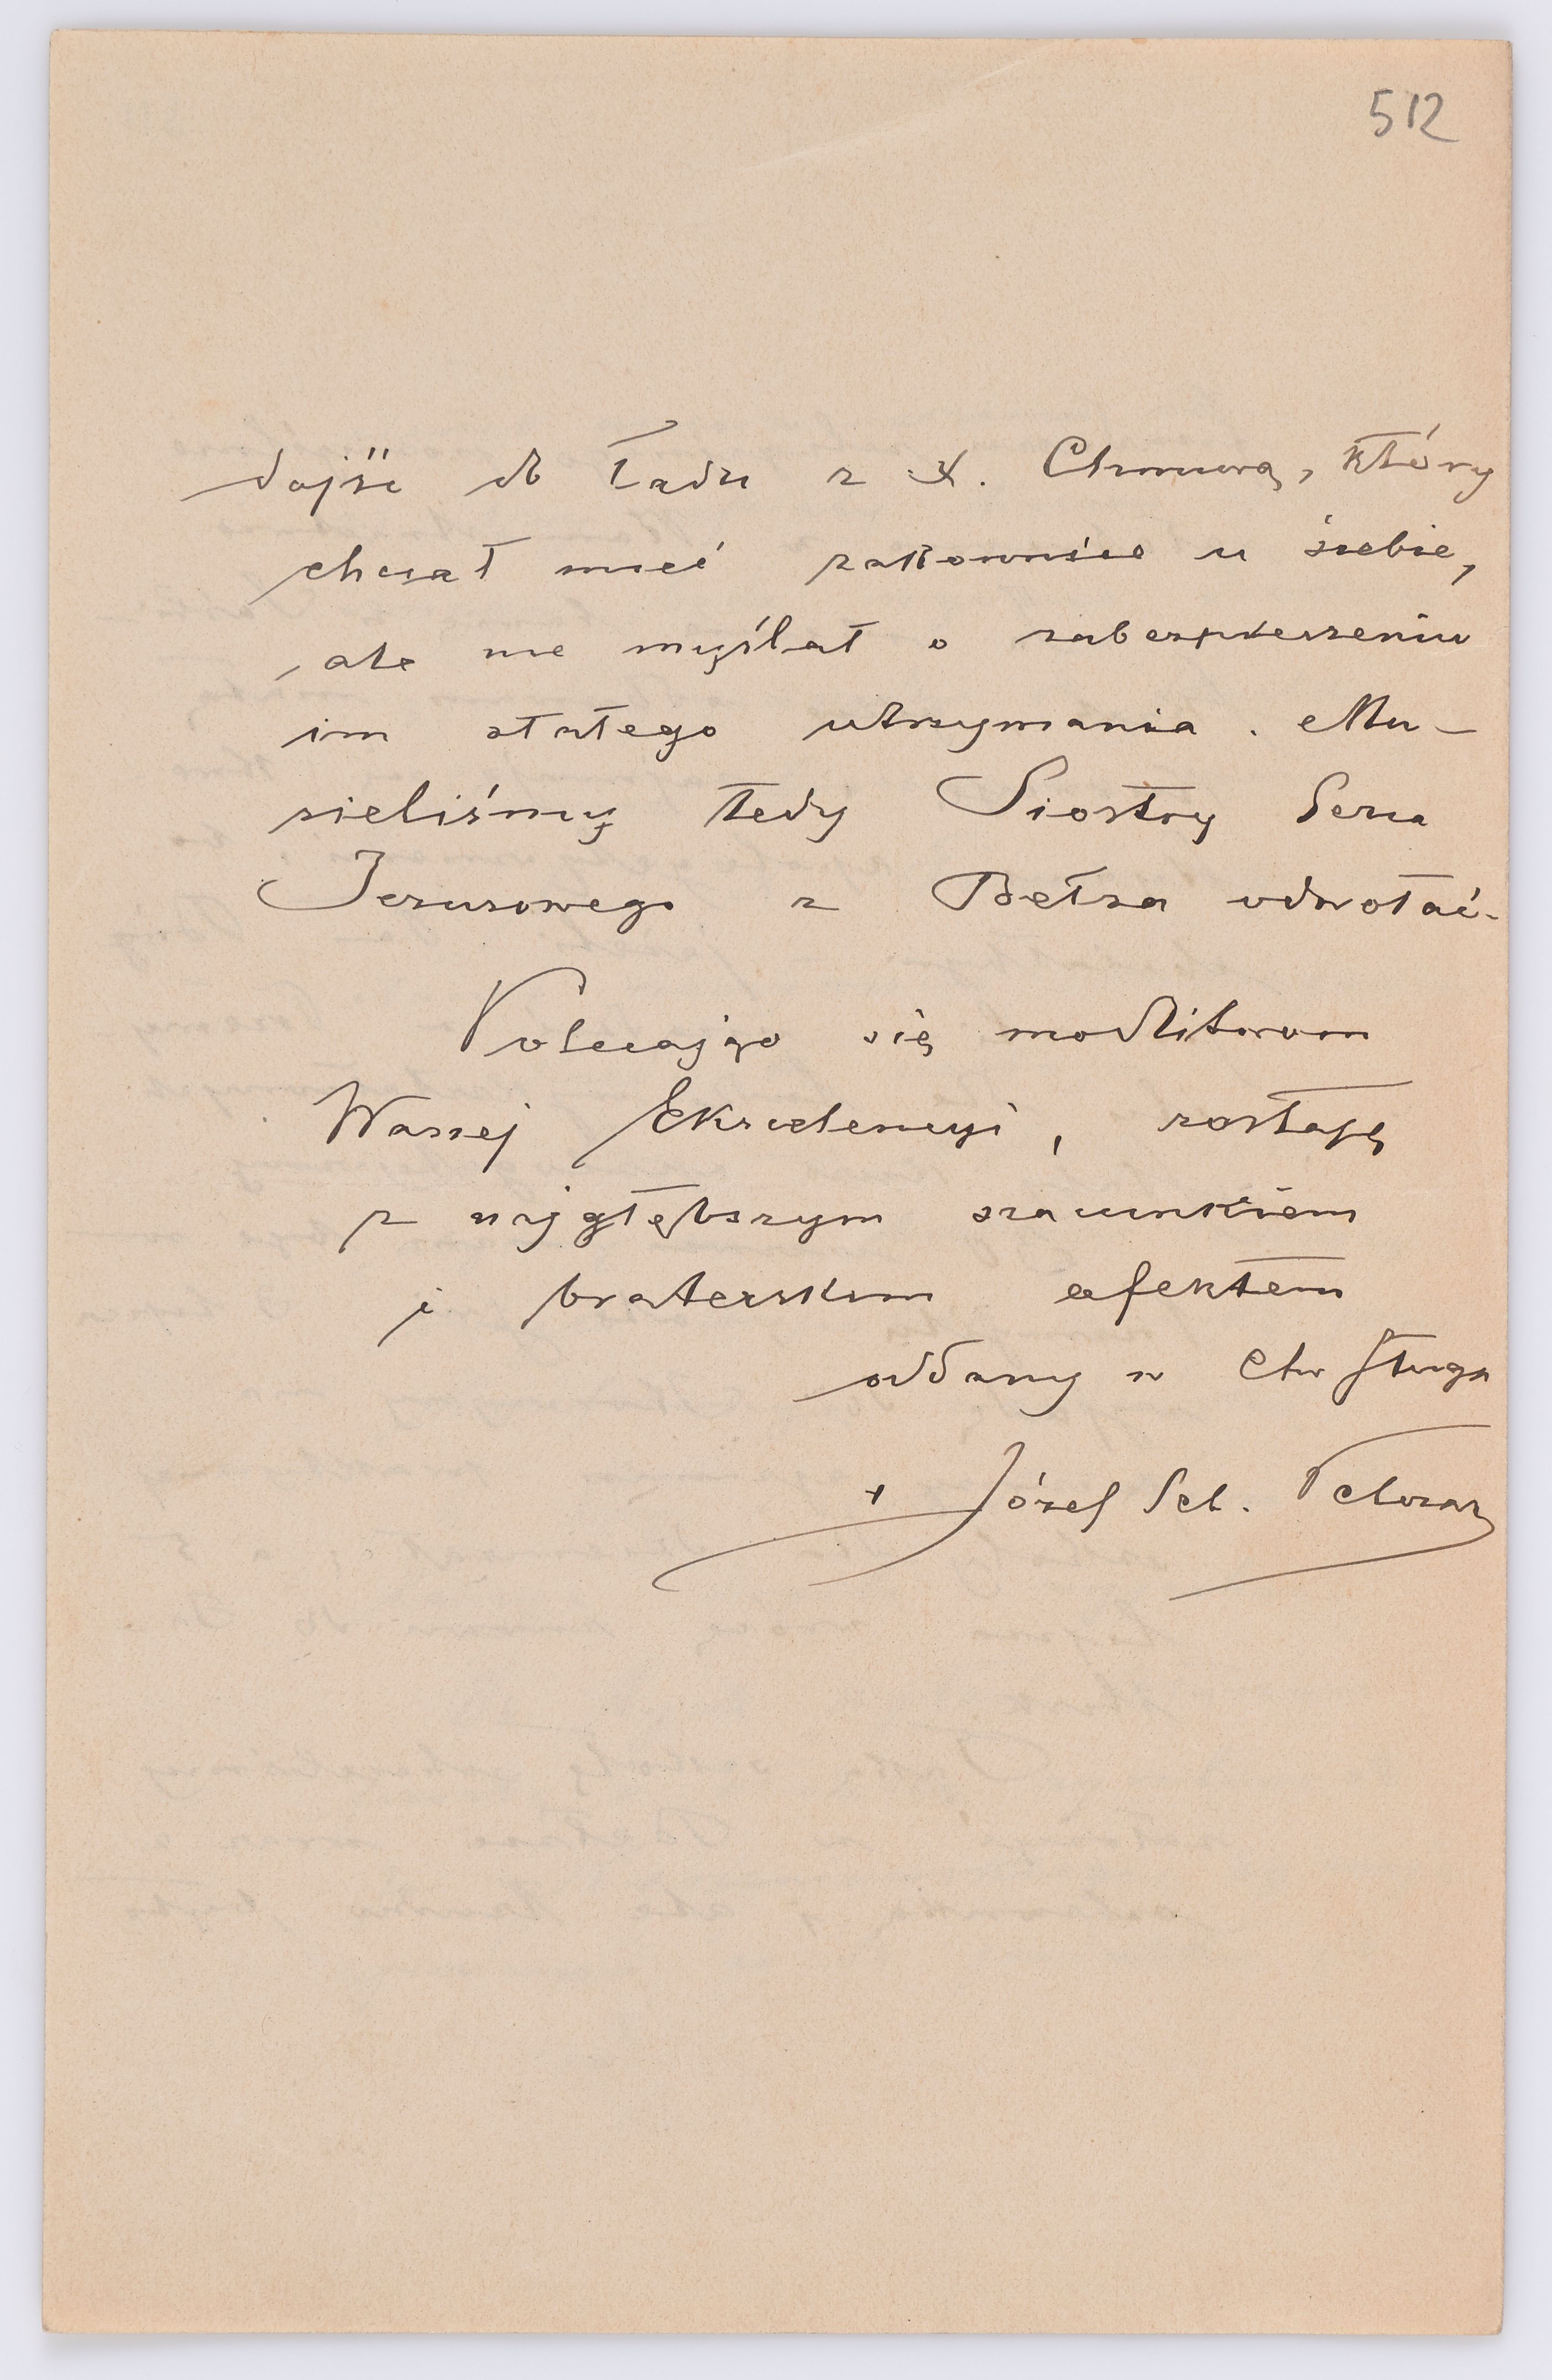 512
dojść do ładu z X. Chmurą, który
chciał mieć zakonnice u siebie,
ale nie myślał o zabezpieczeniu
im stałego utrzymania. Mu-
sieliśmy tedy Siostry Serca
Jezusowego z Bełza odwołać.
Polecając się modlitwom
Waszej Ekscelencyi, zostaję
z najgłębszym szacunkiem
i braterskim afektem
oddany w Chr sługa
+ Józef Seb. Pelczar